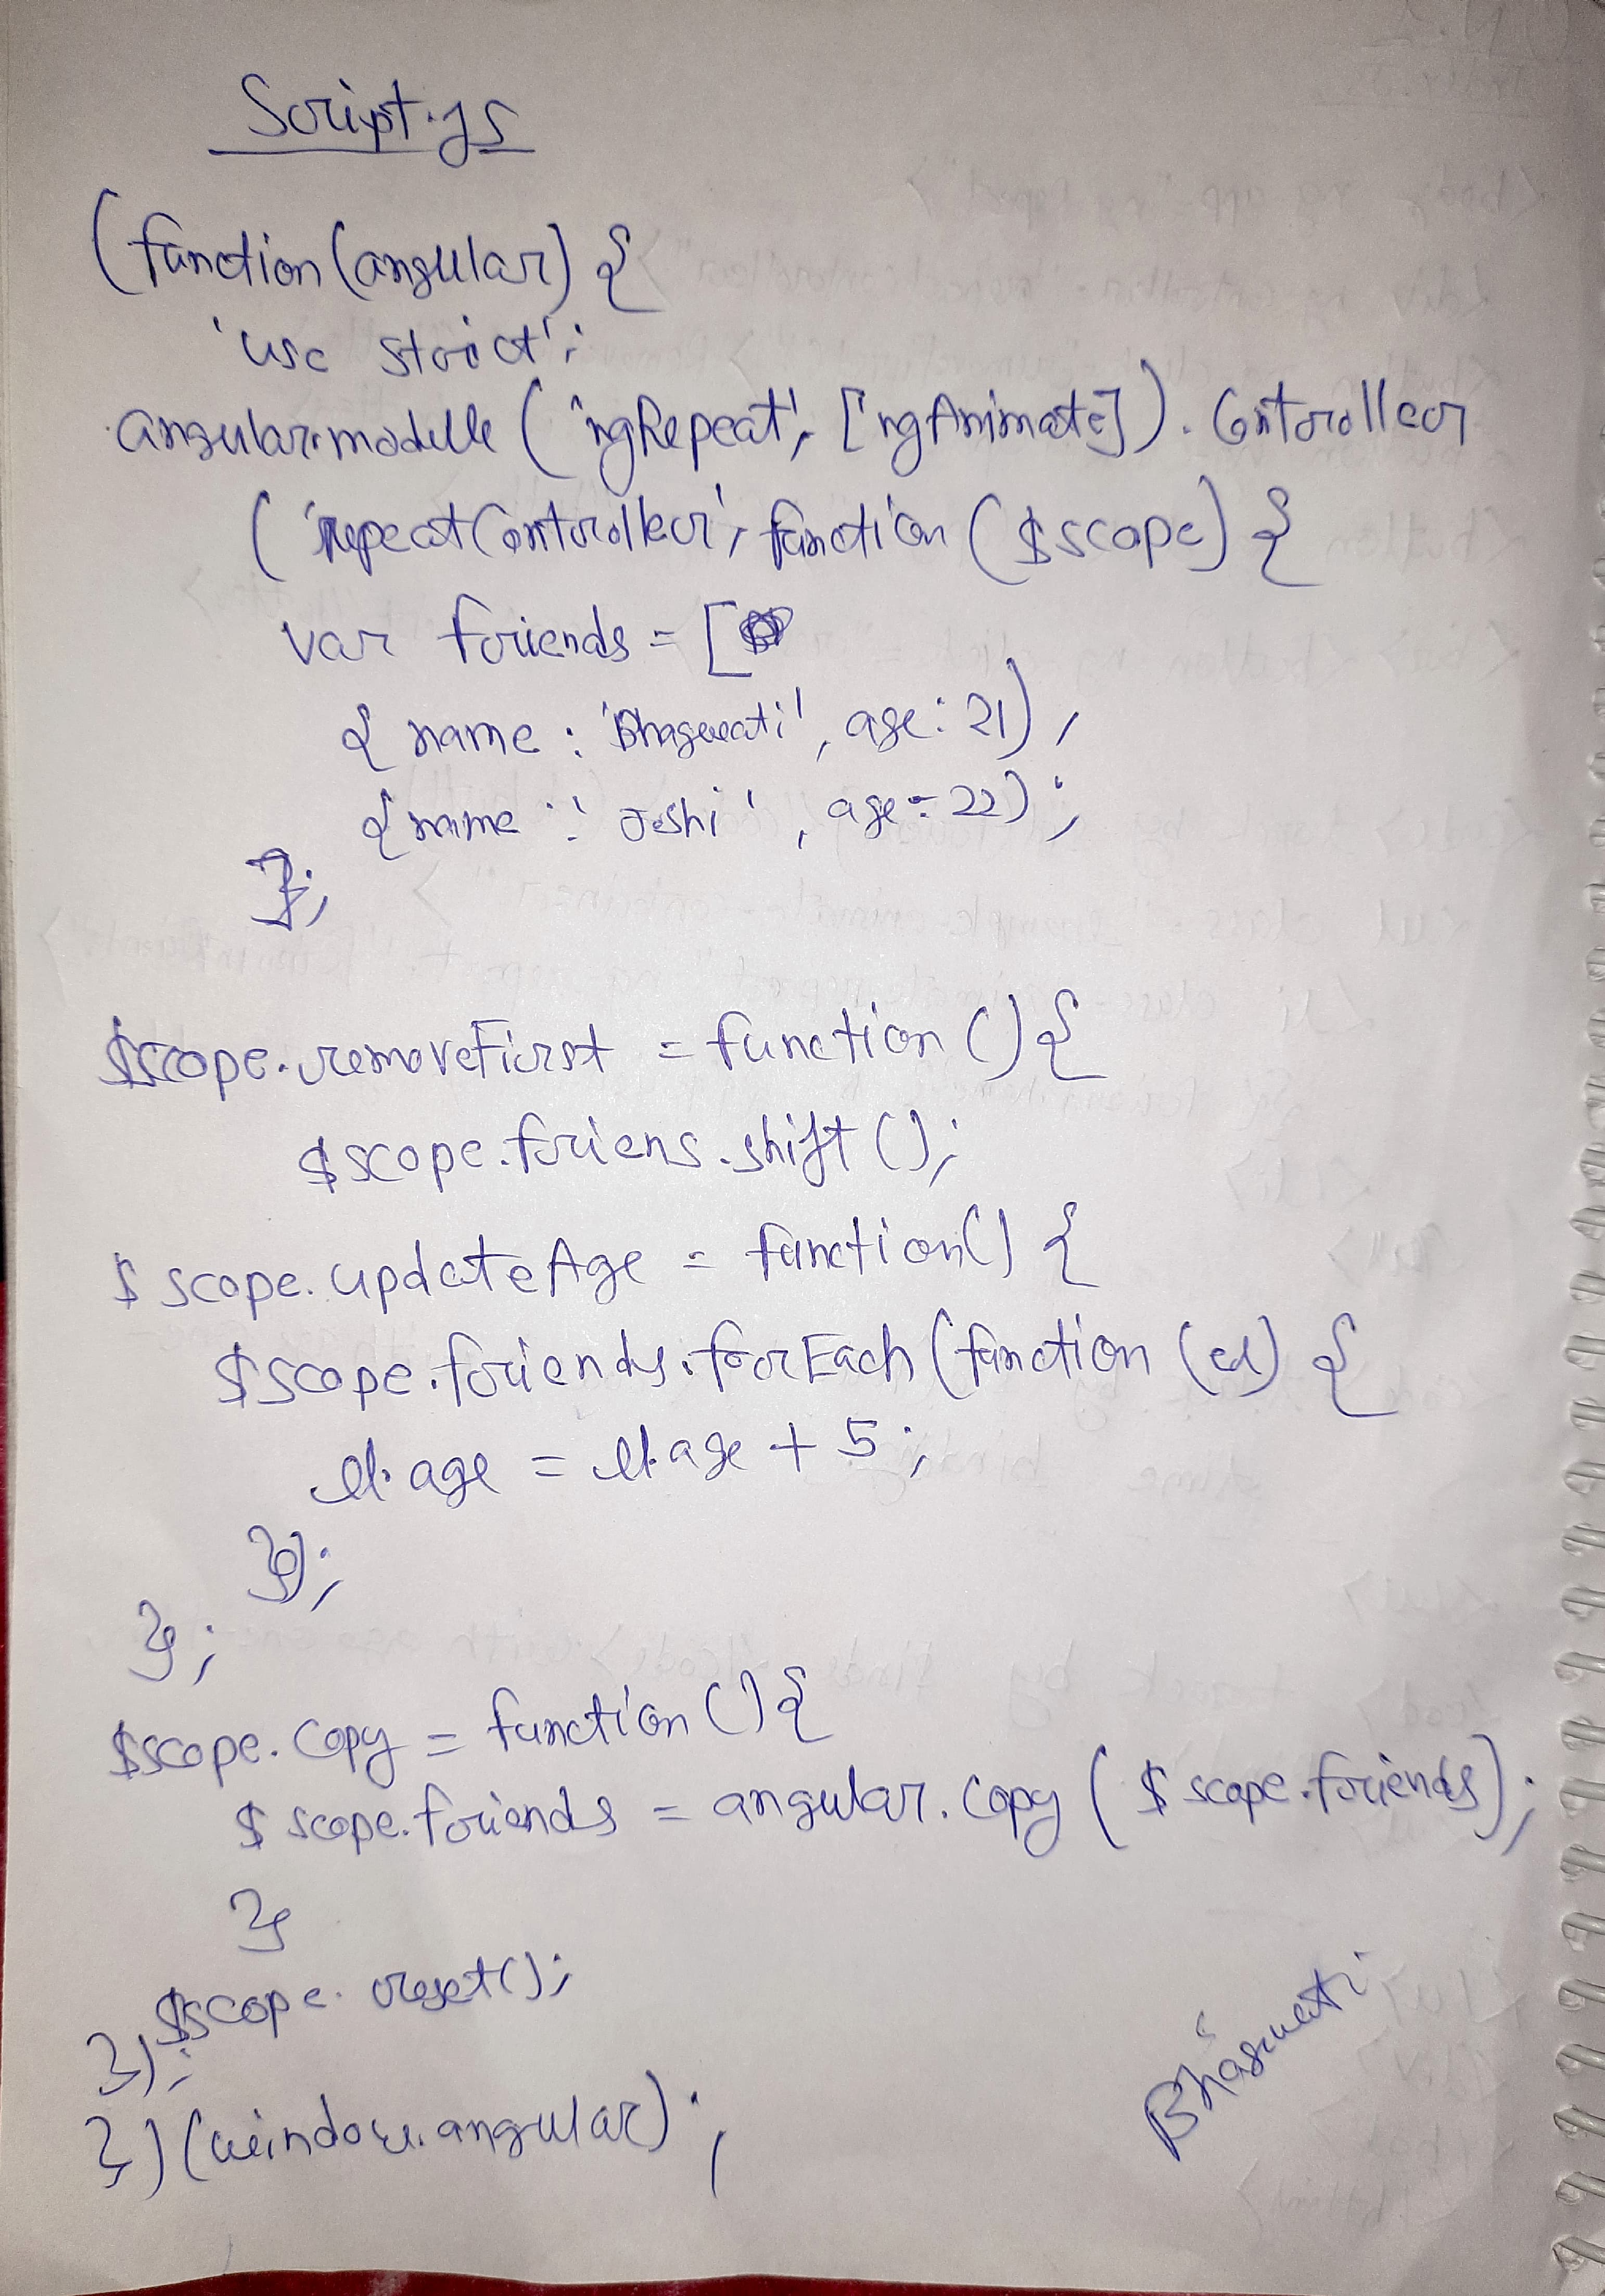 Script.js
(function(angular) {
'use strict';
angular.module ('ngRepeat', ['ngAnimate]). Controller
('repeatController', function ($scope) {
var friends = [
{ name : 'Bhagwati', age: 21},
{name : ' Joshi ', age = 22};
};
$scope.removeFirst = function () {
$scope.friens.shift ();
$scope.updateAge = function() {
$scope.friends.forEach (function (el) {
el.age = el.age + 5;
});
};
$scope.copy = function () {
$scope.friends = angular.copy ($scope.friends);
}
$scope.reset();
});
}) (window.angular);
Bhagwati